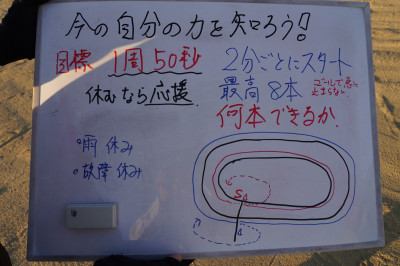 今の自分の力を知ろう!
目標 1周50秒
2分ごとにスタート
休むなら応援
最高8本
ゴールで急に
止まらない
何本できるか.
雨休み
故障休み